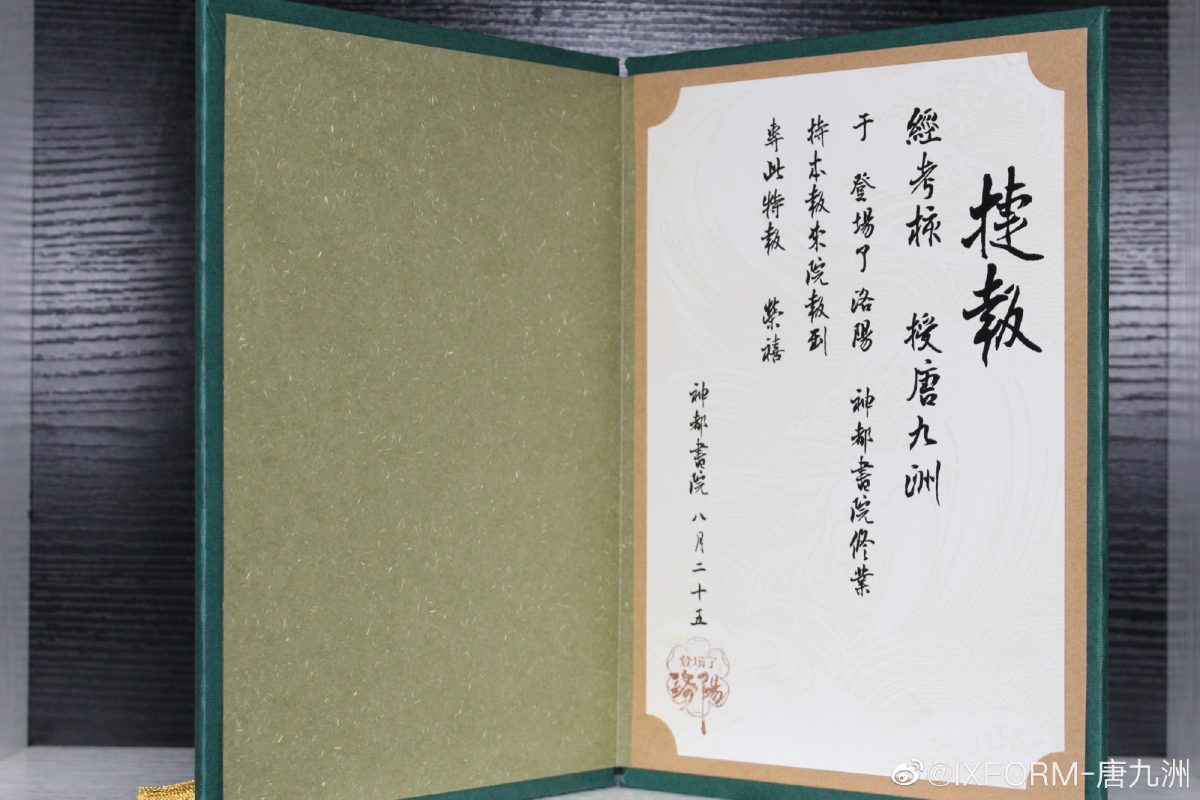 捷報
經考核 授唐九洲
于 登場了洛陽 神都書院修業
持本報來院報到
專此特報 榮禧
神都書院 八月二十五
登场了
洛陽
@IXFORM-唐九洲